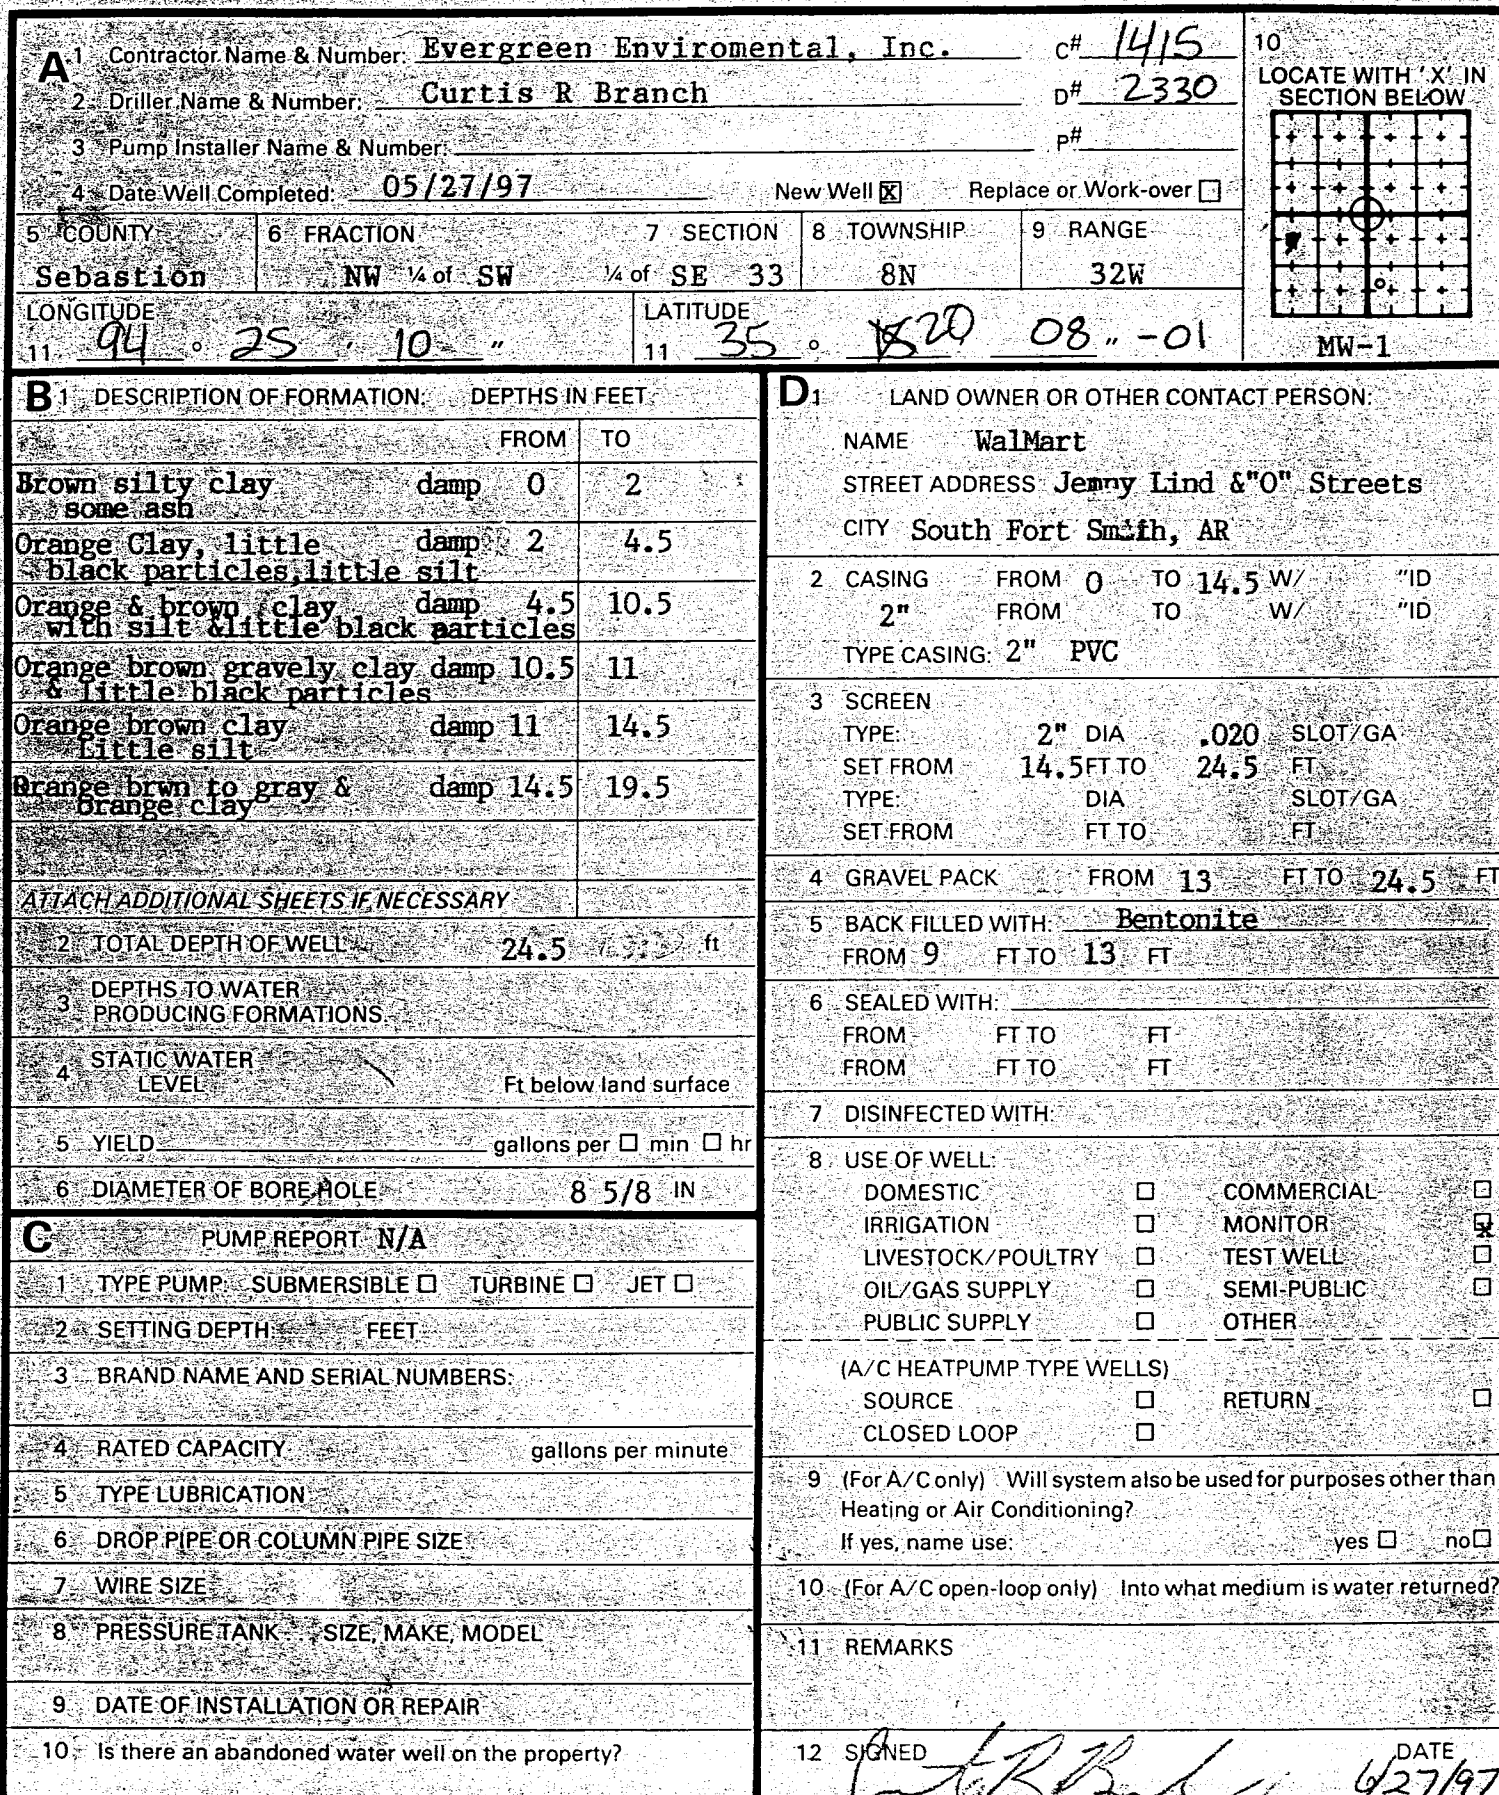 A 1 Contractor Name & Number: Evergreen Enviromental, Inc. C# 1415
2 Driller Name & Number: Curtis R Branch D# 2330
3 Pump Installer Name & Number: P#
4 Date Well Completed: 05/27/97 New Well X Replace or Work-over
10
LOCATE WITH 'X' IN
SECTION BELOW
MW-1
5 COUNTY 6 FRACTION 7 SECTION 8 TOWNSHIP 9 RANGE
Sebastion NW ¼ of SW ¼ of SE 33 8N 32W
LONGITUDE LATITUDE
11 94 ° 25 ' 10 " 11 35 ° 20 08 " -01
B 1 DESCRIPTION OF FORMATION: DEPTHS IN FEET
FROM TO
Brown silty clay damp 0 2
some ash
Orange Clay, little damp 2 4.5
black particles,little silt
Orange & brown clay damp 4.5 10.5
with silt &little black particles
Orange brown gravely clay damp 10.5 11
& little black particles
Orange brown clay damp 11 14.5
Little silt
Orange brwn to gray & damp 14.5 19.5
orange clay
ATTACH ADDITIONAL SHEETS IF NECESSARY
2 TOTAL DEPTH OF WELL 24.5 ft
3 DEPTHS TO WATER
PRODUCING FORMATIONS
4 STATIC WATER
LEVEL Ft below land surface
5 YIELD gallons per min hr
6 DIAMETER OF BORE HOLE 8 5/8 IN
C PUMP REPORT N/A
1 TYPE PUMP: SUBMERSIBLE TURBINE JET
2 SETTING DEPTH: FEET
3 BRAND NAME AND SERIAL NUMBERS:
4 RATED CAPACITY gallons per minute
5 TYPE LUBRICATION
6 DROP PIPE OR COLUMN PIPE SIZE
7 WIRE SIZE
8 PRESSURE TANK SIZE, MAKE, MODEL
9 DATE OF INSTALLATION OR REPAIR
10 Is there an abandoned water well on the property?
D 1 LAND OWNER OR OTHER CONTACT PERSON:
NAME WalMart
STREET ADDRESS Jenny Lind &"O" Streets
CITY South Fort Smith, AR
2 CASING FROM 0 TO 14.5 W/ "ID
2" FROM TO W/ "ID
TYPE CASING: 2" PVC
3 SCREEN
TYPE: 2" DIA .020 SLOT/GA
SET FROM 14.5 FT TO 24.5 FT
TYPE: DIA SLOT/GA
SET FROM FT TO FT
4 GRAVEL PACK FROM 13 FT TO 24.5 FT
5 BACK FILLED WITH: Bentonite
FROM 9 FT TO 13 FT
6 SEALED WITH:
FROM FT TO FT
FROM FT TO FT
7 DISINFECTED WITH:
8 USE OF WELL:
DOMESTIC COMMERCIAL
IRRIGATION MONITOR X
LIVESTOCK/POULTRY TEST WELL
OIL/GAS SUPPLY SEMI-PUBLIC
PUBLIC SUPPLY OTHER
(A/C HEATPUMP TYPE WELLS)
SOURCE RETURN
CLOSED LOOP
9 (For A/C only) Will system also be used for purposes other than
Heating or Air Conditioning?
If yes, name use: yes no
10 (For A/C open-loop only) Into what medium is water returned?
11 REMARKS
12 SIGNED DATE
6/27/97